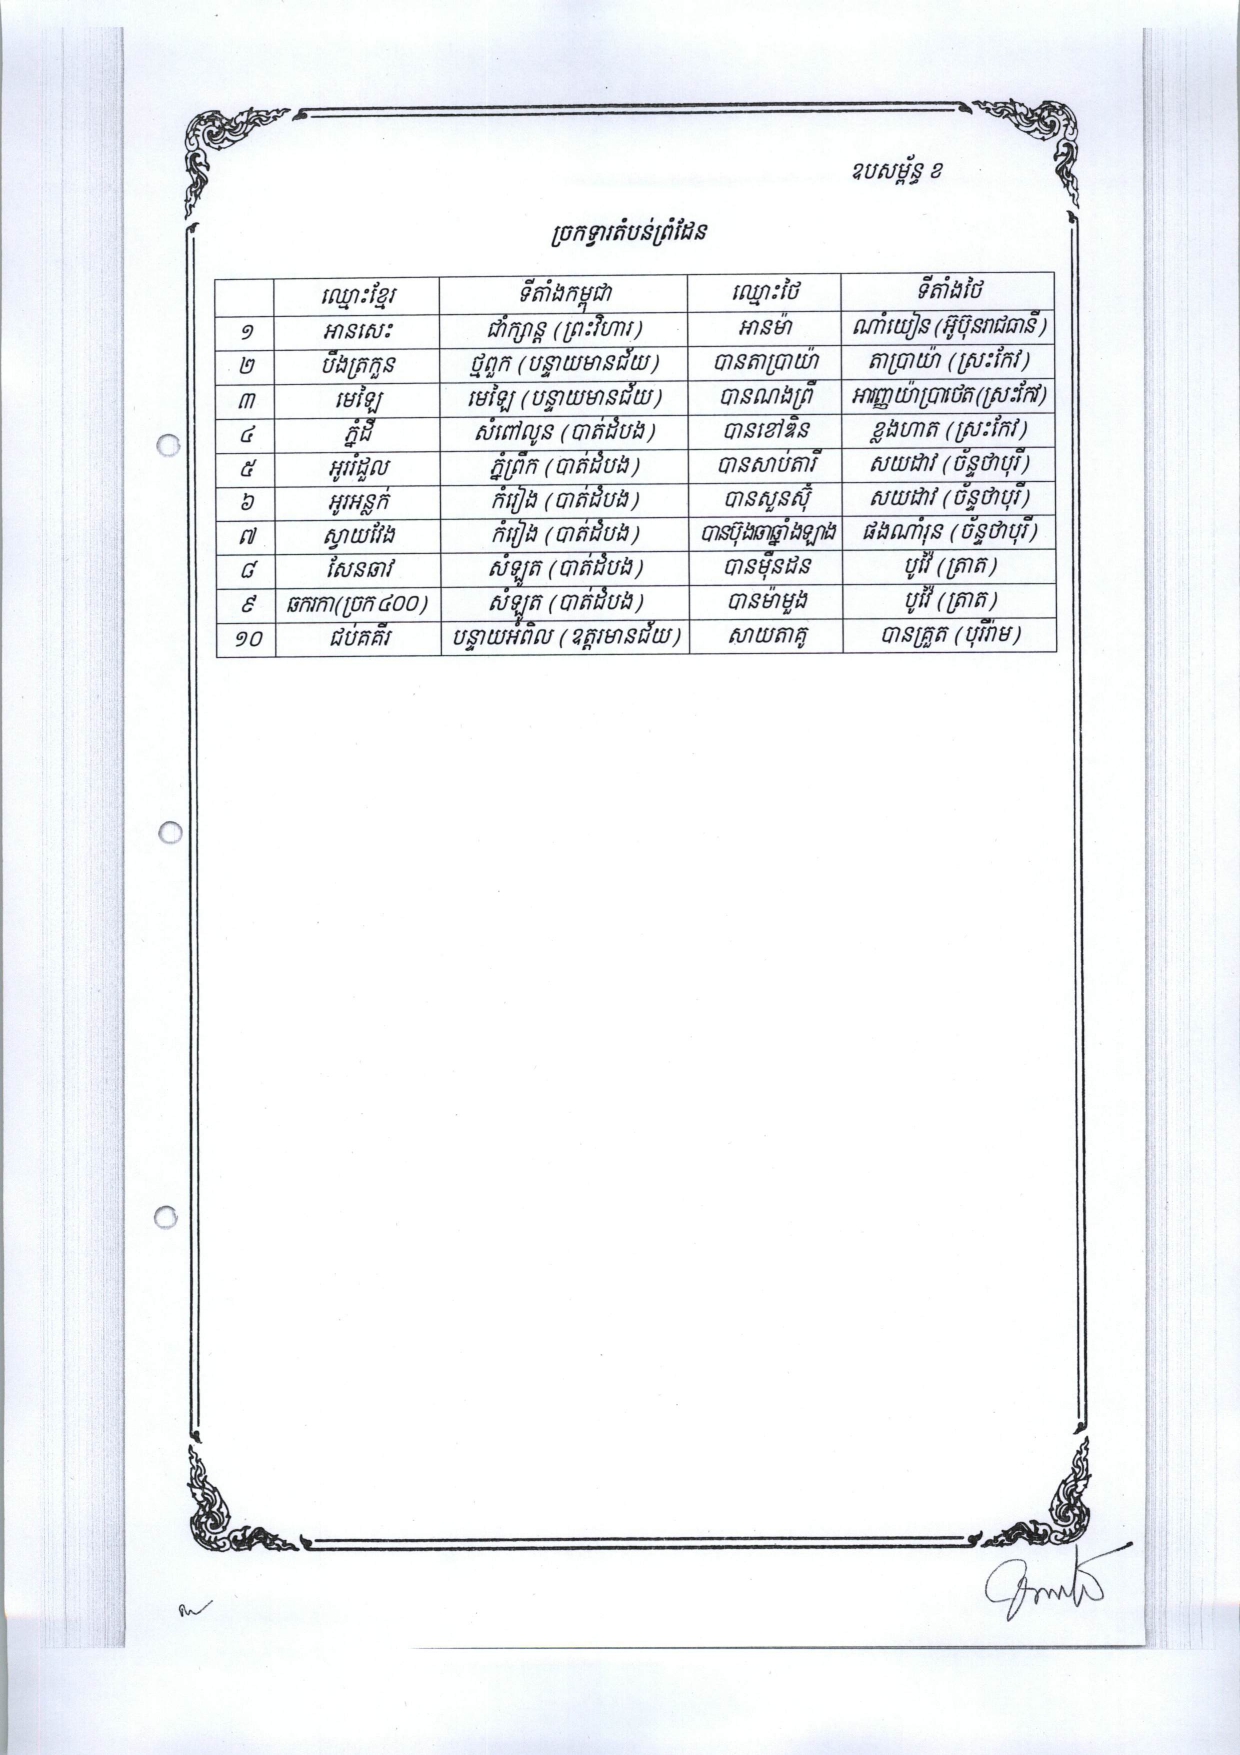 ឧបសម្ព័ន្ធ ខ
ច្រកទ្វារតំបន់ព្រំដែន
ឈ្មោះខ្មែរ ទីតាំងកម្ពុជា ឈ្មោះថៃ ទីតាំងថៃ
១ អានសេះ ជាំក្សាន្ត (ព្រះវិហារ) អានម៉ា ណាំយៀន (អ៊ូប៊ុនរាជធានី)
២ បឹងត្រកួន ថ្មពួក (បន្ទាយមានជ័យ) បានតាប្រាយ៉ា តាប្រាយ៉ា (ស្រះកែវ)
៣ មេឡៃ មេឡៃ (បន្ទាយមានជ័យ) បានណងព្រឺ អារញ្ញយ៉ាប្រាថេត (ស្រះកែវ)
៤ ភ្នំដី សំពៅលូន (បាត់ដំបង) បានខៅឌិន ខ្លងហាត (ស្រះកែវ)
៥ អូររំដួល ភ្នំព្រឹក (បាត់ដំបង) បានសាប់តារី សយដាវ (ច័ន្ទថាបុរី)
៦ អូរអន្លក់ កំរៀង (បាត់ដំបង) បានសួនស៊ុំ សយដាវ (ច័ន្ទថាបុរី)
៧ ស្វាយវែង កំរៀង (បាត់ដំបង) បានប៊ុងឆាឆ្នាំងឡាង ផងណាំរ៉ុន (ច័ន្ទថាបុរី)
៨ សែនឆាវ សំឡូត (បាត់ដំបង) បានម៉ឺនដន បូរ៉ៃ (ត្រាត)
៩ ឆករកា (ច្រក ៤០០) សំឡូត (បាត់ដំបង) បានម៉ាមួង បូរ៉ៃ (ត្រាត)
១០ ជប់គគីរ បន្ទាយអំពិល (ឧត្តរមានជ័យ) សាយតាគូ បានគ្រួត (បុរីរ៉ាម)